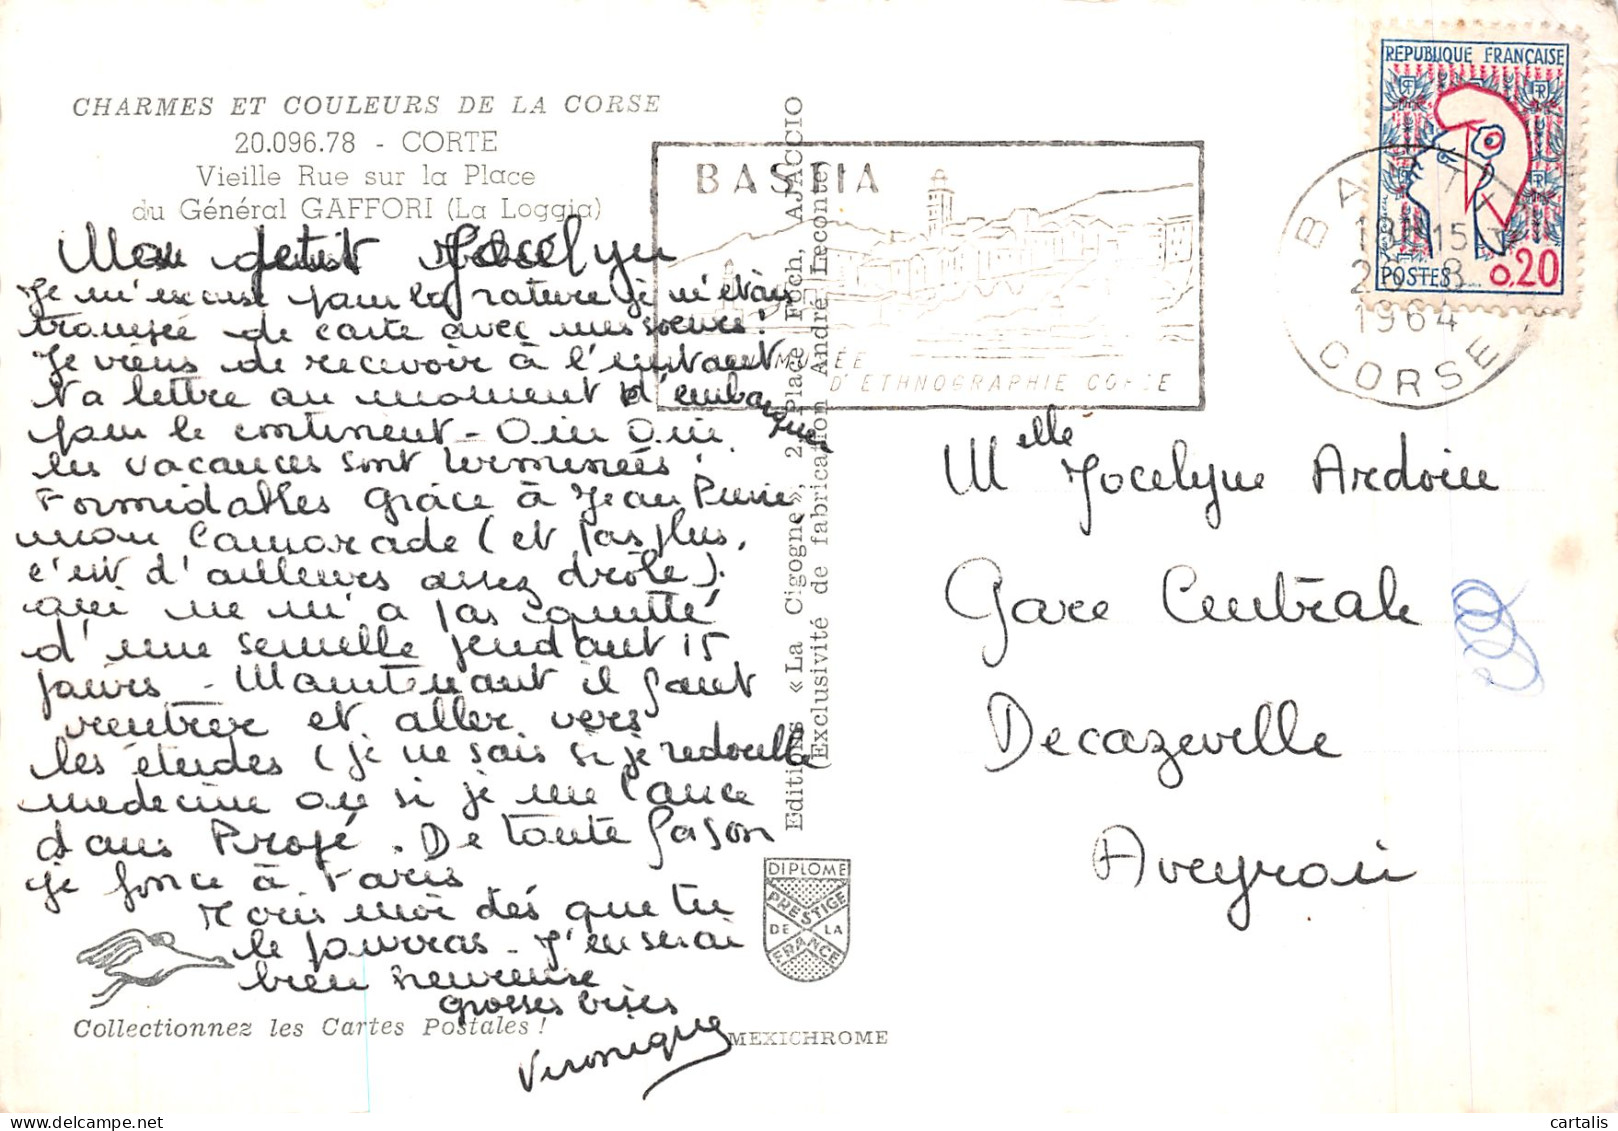 CHARMES ET COULEURS DE LA CORSE
20.096.78 - CORTE
Vieille Rue sur la Place
du Général GAFFORI (La Loggia)
Mon petit Jocelyn
Je m'excuse pour la rature je m'étais
trompée de carte avec mes soeurs!
Je viens de recevoir à l'instant
ta lettre au moment d'embarquer
pour le continent - Oui Oui
les vacances sont terminées!
Formidables grâce à Jean Pierre
mon Camarade (et pas plus,
c'est d'ailleurs assez drôle).
qui ne m'a pas quitté
d'une semelle pendant 15
jours - Maintenant il faut
rentrer et aller vers
les études (je ne sais si je redouble
médecine ou si je me lance
dans Profé. De toute façon
je fonce à Paris
Ecris moi dès que tu
le pourras - J'en serai
bien heureuse
grosses bises
Veronique
Collectionnez les Cartes Postales!
Editions «La Cigogne», 2, Place Foch, AJACCIO
(Exclusivité de fabrication André Leconte)
DIPLOME
PRESTIGE
DE LA
FRANCE
MEXICHROME
BASTIA
MUSÉE
D'ETHNOGRAPHIE CORSE
BASTIA
15
1964
CORSE
REPUBLIQUE FRANÇAISE
POSTES 0,20
Melle Jocelyne Ardoin
Gare Centrale
Decazeville
Aveyron
cartalis
www.delcampe.net